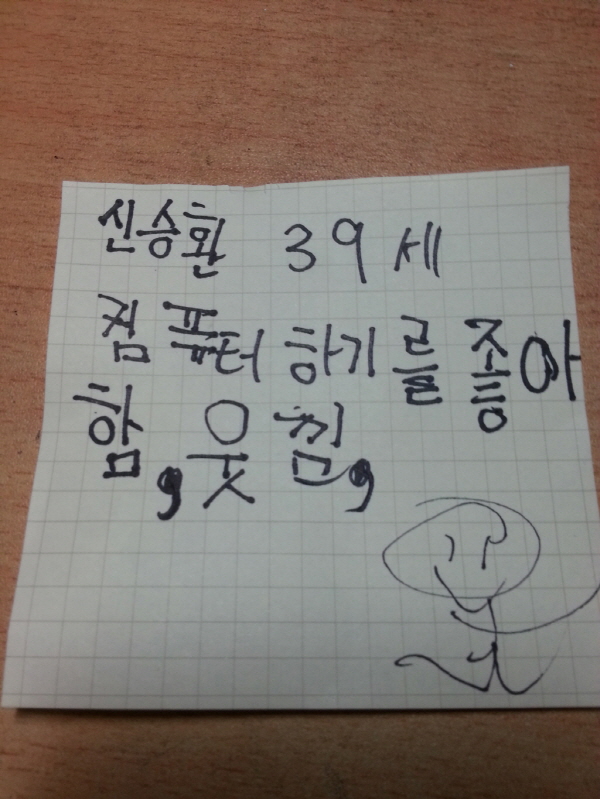 신승환 39세
컴퓨터 하기를 좋아
함, 웃김,